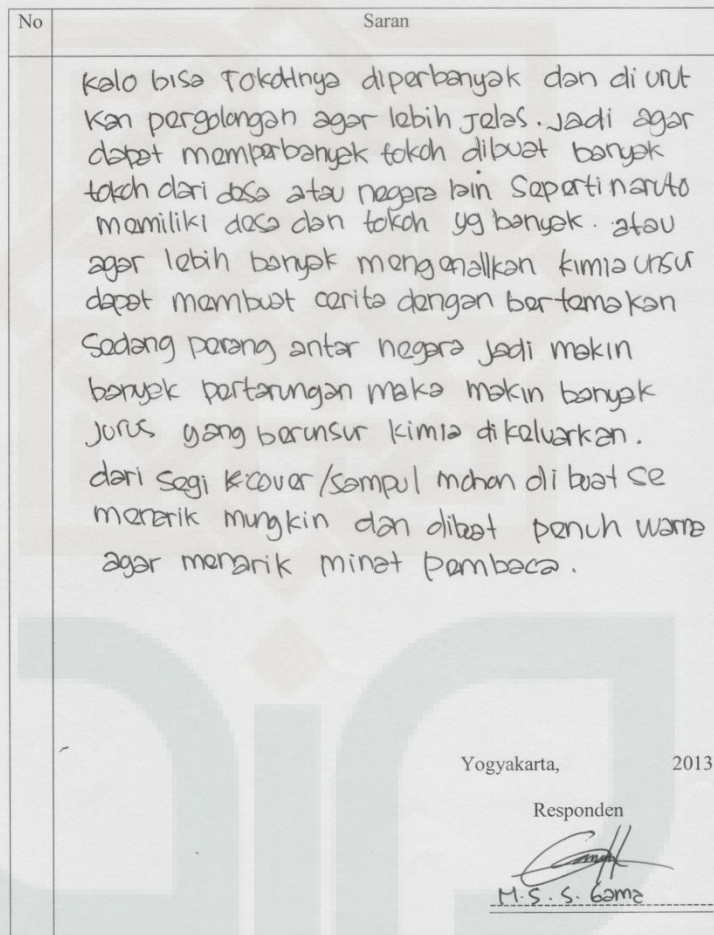 No Saran
Kalo bisa Tokohnya diperbanyak dan di urut
kan pergolongan agar lebih jelas. Jadi agar
dapat memperbanyak tokoh dibuat banyak
tokoh dari desa atau negara lain Seperti naruto
memiliki desa dan tokoh yg banyak. atau
agar lebih banyak mengenalkan kimia unsur
dapat membuat cerita dengan bertemakan
Sedang perang antar negara jadi makin
banyak pertarungan maka makin banyak
jurus yang berunsur kimia dikeluarkan.
dari segi cover/sampul mohon di buat se
menarik mungkin dan dibuat penuh warna
agar menarik minat Pembaca.
Yogyakarta, 2013
Responden
M.S.S. Gama